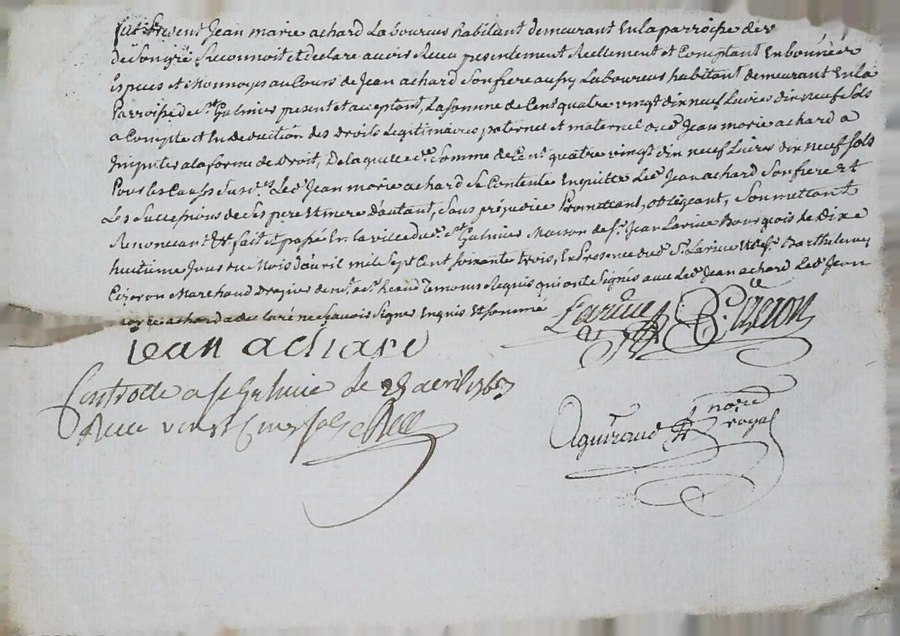 Jean marie achard Laboureur habitant demeurant En la parroisse de
de Songrè Reconnoit et declare avoir Receu presentement Reellement et Comptant En bonnées
Especes et Monnoyes au Cours de Jean achard Son frere aussy Laboureur habitant demeurant En La
Parroisse de St. Galmier present et acceptant, La Somme de Cent quatre vingt dix neuf Livres dix neuf Sols
a Compte et En deduction des Droits Legitimaires paternel et maternel Jean marie achard a
Imputer a la forme de Droit, De laquelle Somme de Cent quatre vingt dix neuf Livres dix neuf Sols
Pour les Causes Susd. Led. Jean marie achard Se Contente En quitte Led. Jean achard Son frere Et
Les Successions de Ses pere Et mere d'autant, Sans prejudice Promettant, obligeant, Soumettant
Renoncant &c fait et passé En la ville du St. Galmier Maison de Sr. Jean Bourgeois Le Dixe
huitieme Jour du Mois d'avril mil Sept Cent Soixante trois, En Presence dud. Sr. Et de Sr. Barthelemy
Marchand Temoins Requis qui ont Signés avec Led. Jean achard Led. Jean
marie achard a declaré ne Scavoir Signer Enquis Et Sommé
jean achard
Controllé a St Galmier le 28 avril 1763
Receu vingt Cinq Sols
nore
royal